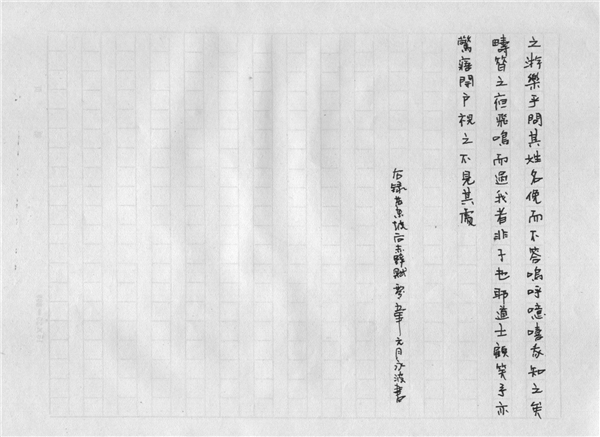 之游樂乎問其姓名俛而不答嗚呼噫嘻我知之矣
疇昔之夜飛鳴而過我者非子也耶道士顧笑予亦
驚寤開戶視之不見其處
右録苏东坡后赤壁賦 年元月 波書